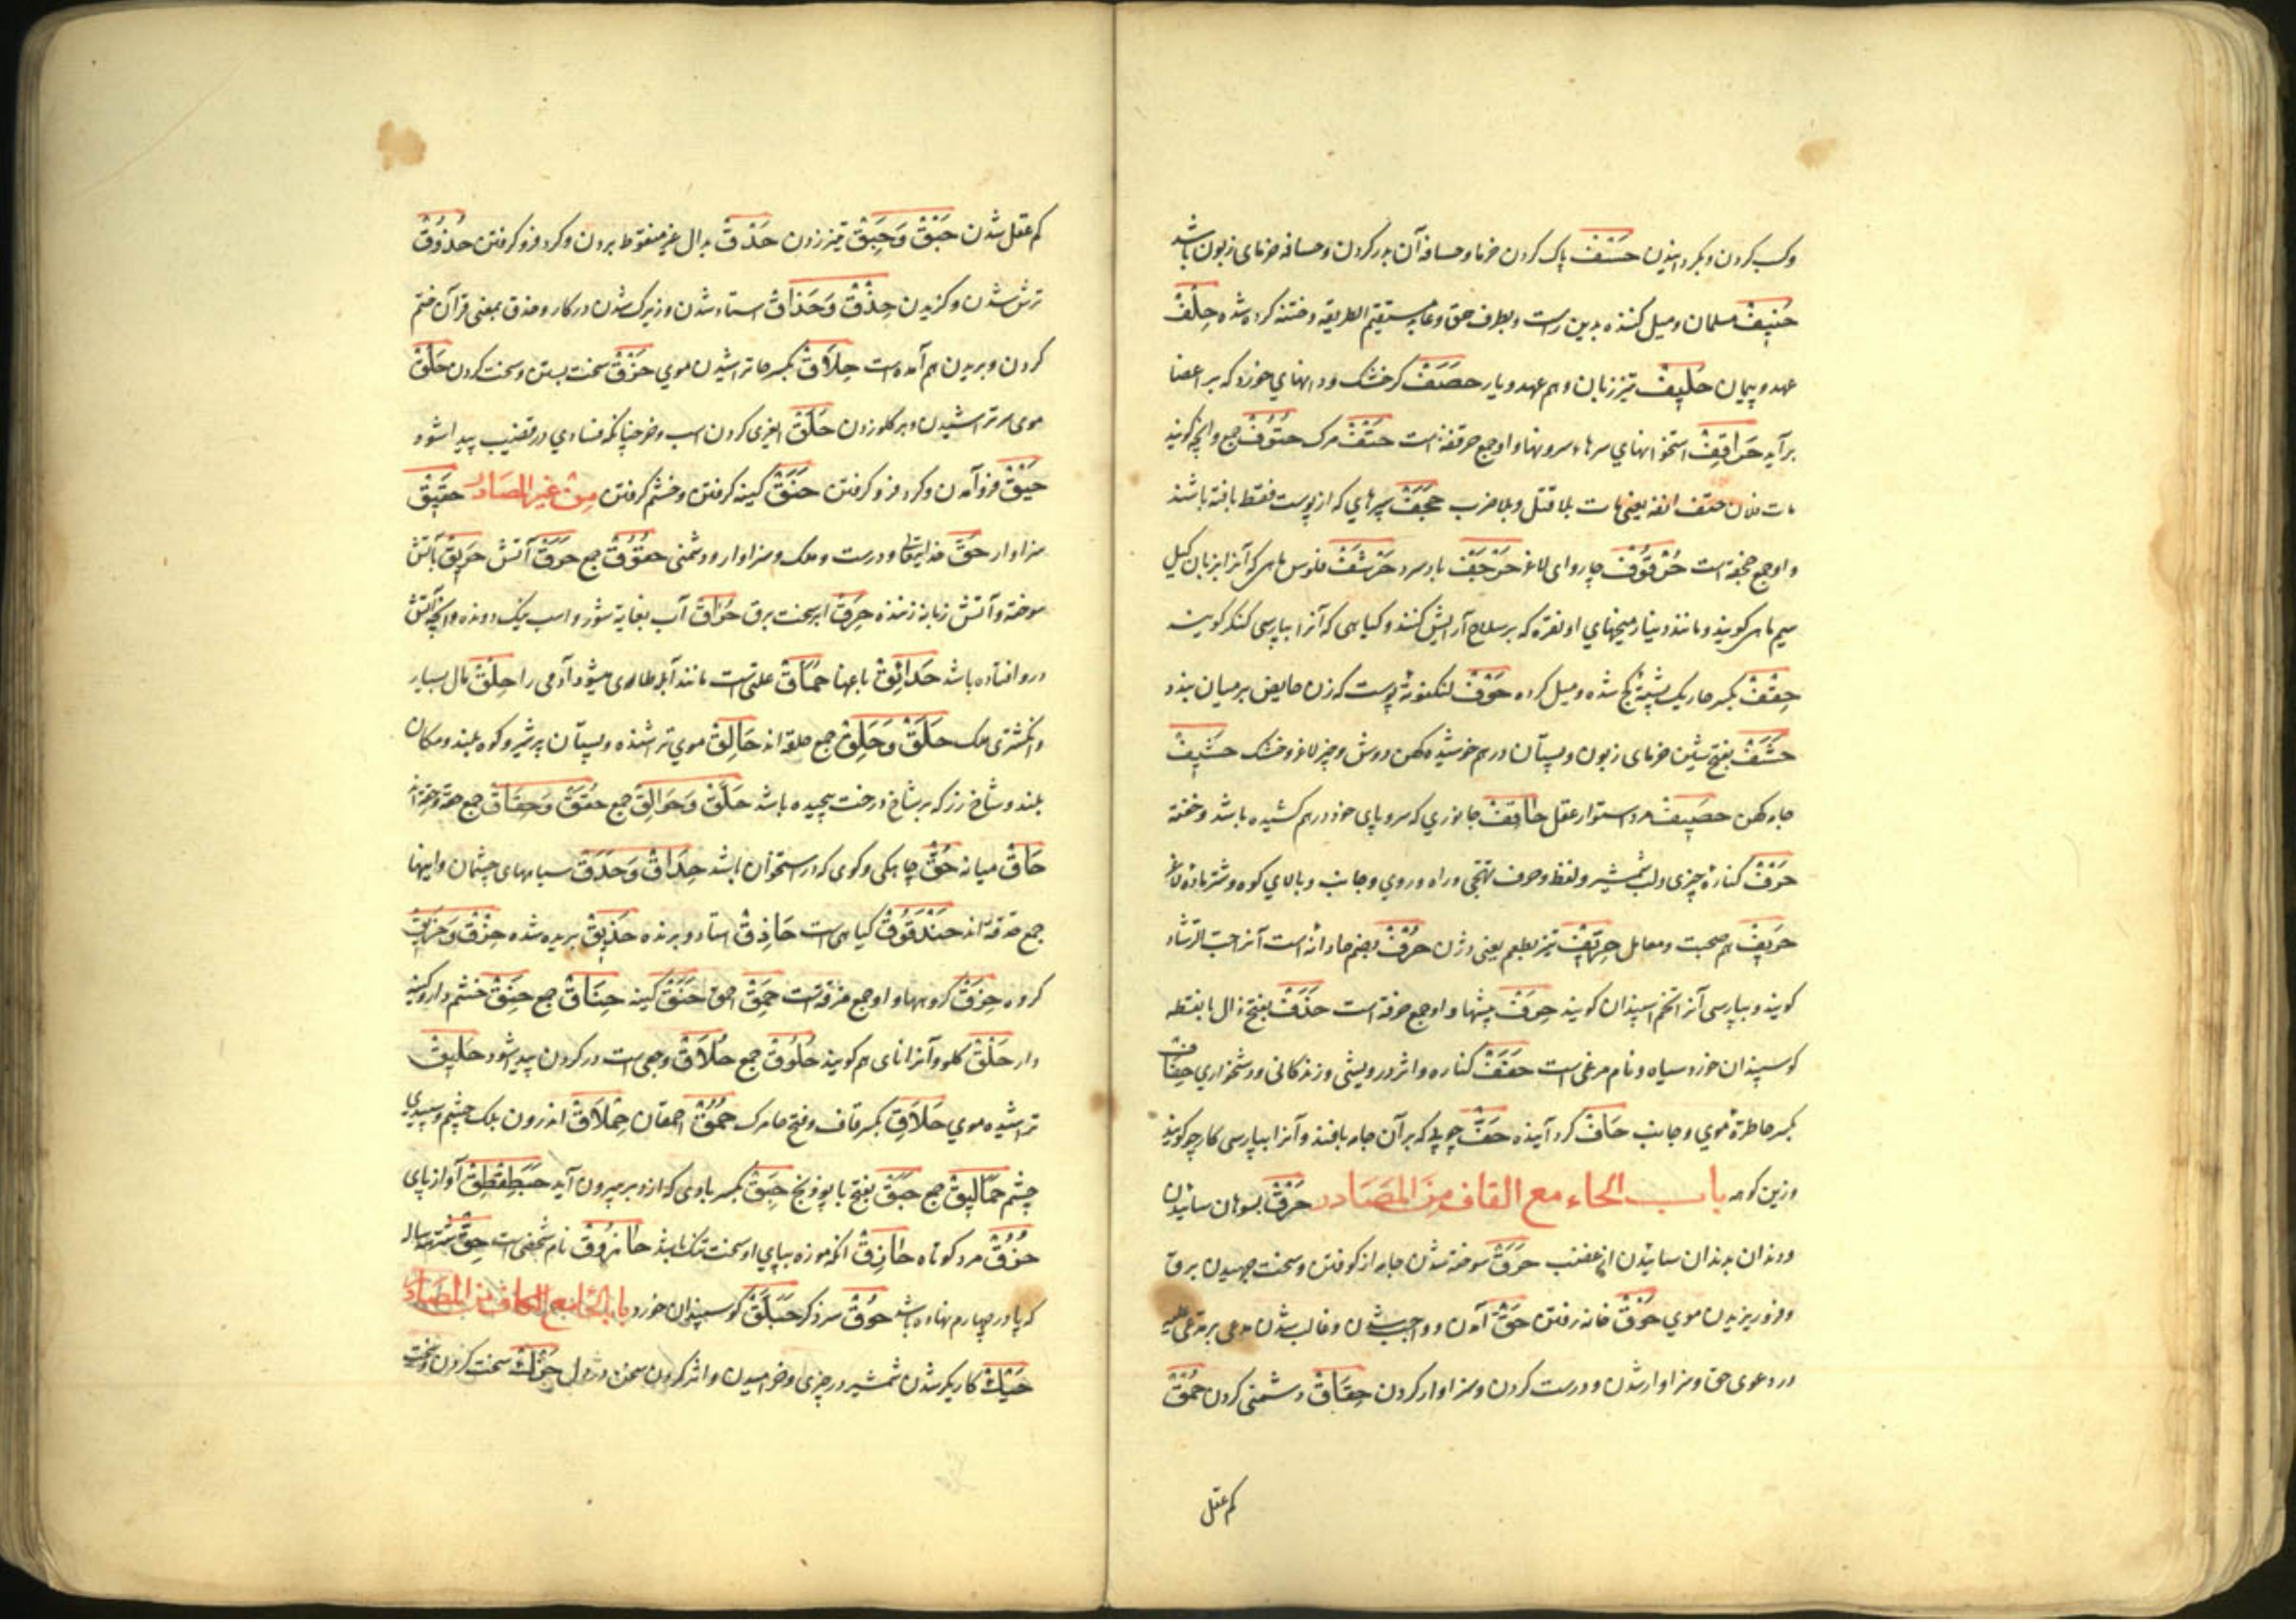 وکسب کردن و بگردانیدن حَسْفْ پاک کردن خرما و حسافه آن بدر کردن و حسافه خرمای زبون باشد
حَنِیفْ مسلمان و میل کننده بدین راست و بطرف حق و مستقیم الطریقه و ختنه کرده شده حِلْفْ
عهد و پیمان حَلِیفْ تیز زبان و هم عهد و یار حَصَفْ کر خشک و دانهای خورد که بر اعضا
برآید حَرَاقِفْ استخوانهای سرهاء سرونها و او جمع حرقفه است حَتْفْ مرک حُتُوفْ جمع و آنچه گویند
مات فلان حتف انفه یعنی مات بلا قتل و بلا ضرب حَجَفْ سپرهای که از پوست فقط بافته باشند
و او جمع حجفه است حُرْقُوفْ چاروای لاغر حَرْجَفْ باد سرد حَرْشَفْ فلوس ماهی که آنرا بزبان کیل
سیم ماهی گویند و مانند دینار میخهای او نقره که بر سلاح آرایش کنند و کیاهی که آنرا بپارسی کنکر گویند
حِقْفْ بکسر حا ریک پشته کج شده و میل کرده حَوْفْ لنکوته پوست که زن حایض بر میان بندد
حَشَفْ بفتح شین خرمای زبون و پستان درهم خوشیده کهن دوش و چیز لاغر و خشک حَشِیفْ
جامه کهن حَصِیفْ مرد استوار عقل حَاقِفْ جانوری که سر و پای خود درهم کشیده باشد و خفته
حَرْفْ کناره چیزی و لب شمشیر و لفظ و حرف تهجی و راه و روی و جانب و بالای کوه و شتر ماده لاغر
حَرِیفْ هم صحبت و معامل حِرِّیفْ تیز بطعم یعنی وژن حُرْفْ بضم حا دانه است آنرا حب الرشاد
گویند و بپارسی آنرا تخم سپندان گویند حِرَفْ پیشها و او جمع حرفة است حَذَفْ بفتح ذال با نقطه
کوسپندان خورد سیاه و نام مرغی است حَفَفْ کناره و اثر درویشی و زندکانی و دشخواری حِفَافْ
بکسر حا طرة موی و جانب حَافْ کرد آینده حَفّْ چوبی که بر آن جامه بافند و آنرا بپارسی کارچو گویند
وزین کوهه باب الحاء مع القاف من المصادر حَرْقْ بسوهان سائیدن
و دندان بدندان سائیدن از غضب حَرَقْ سوخته شدن جامه از کوفتن و سخت جهیدن برق
و فرو ریزیدن موی حَوْقْ خانه رفتن حَقّْ آمدن و واجب شدن و غالب شدن مدعی بر مدعی علیه
در دعوی حق و سزاوار شدن و درست کردن و سزاوار کردن حِقَاقْ دشمنی کردن حُمْقْ
کم عقل
کم عقل شدن حَبْقْ وَحَبِقْ تیز زدن حَدْقْ بدال غیر منقوط بردن و کرد فرو کرفتن حُذُوقْ
ترش شدن و کزیدن حِذْقْ وَحَذَاقْ استاد شدن و زیرک شدن در کار و حذق بمعنی قرآن ختم
کردن و بریدن هم آمده است حِلَاقْ بکسر حا تراشیدن موی حَزْقْ سخت بستن و سخت کردن حَلْقْ
موی سر تراشیدن و بر کلو زدن حَلَقْ کردن اسب و خر چنانکه فسادی در قضیب پیدا شود
حَیْقْ فرو آمدن و کرد فرو کرفتن حَنَقْ کینه کرفتن و خشم کرفتن من غیر المصادر حَقِیقْ
سزاوار حَقّْ خدایتعالی و درست و ملک و سزاوار و دشمنی حُقُوقْ جمع حَرَقْ آتش حَرِیقْ بآتش
سوخته و آتش زبانه زننده حَرِقْ ابر سخت برق حُرَاقْ آب بغایة شور و اسب نیک دونده و آنچه آتش
درو افتاده باشد حَدَائِقْ باغها حُمَاقْ علتی است مانند آبله ظاهر میشود آدمی را حِلْقْ مال بسیار
و انکشتری ملک حَلَقْ وَحِلَقْ جمع حلقه اند حَالِقْ موی تراشنده و پستان پر شیر و کوه بلند و مکان
بلند و شاخ رز که بر شاخ درخت پیچیده باشد حَلَقْ وَحَوَالِقْ جمع حُقُقْ وَحِقَاقْ جمع حقه و حقه اند
حَاقْ میانه حُقّْ چاهکی و کوی که در استخوان باشد حِدَاقْ وَحَدَقْ سیاهیهای چشمان و اینها
جمع حدقه اند حَنْدَقُوقْ کیاهی است حَاذِقْ استاد و برنده حَذِیقْ بریده شده حِزْقْ وَحَزِیقْ
کروه حِزَقْ کروهها و او جمع حزقه است حَمِقْ احمق حَنَقْ کینه حِنَاقْ جمع حَنِقْ خشم دار و کینه
دار حَلْقْ کلو و آنرا نای هم گویند حُلُوقْ جمع حُلَاقْ وجعی است در کردن پیدا شود حَلِیقْ
تراشیده موی حَلَاقِ بکسر قاف و فتح حا مرک حُمُقْ احمقان حِمْلَاقْ اندرون پلک چشم و سپیدی
چشم حَمَالِیقْ جمع حَبَقْ بفتح با پودنج حَبِقْ بکسر بادی که از دبر بیرون آید حَبَطِقْطِقْ آواز پای
حُزُقّْ مرد کوتاه حَازِقْ آنکه موزه بپای او سخت تنک باشد حَازُوقْ نام شخصی است حِقّْ شتر سه ساله
که پا در چهارم نهاده باشد حُوقْ سر ذکر حَبَلَّقْ کوسپندان خورد باب الحاء مع الکاف من المصادر
حَیْكْ کاریکر شدن شمشیر در چیزی و خرامیدن و اثر کردن سخن در دل حَزْكْ سخت کردن و سخت